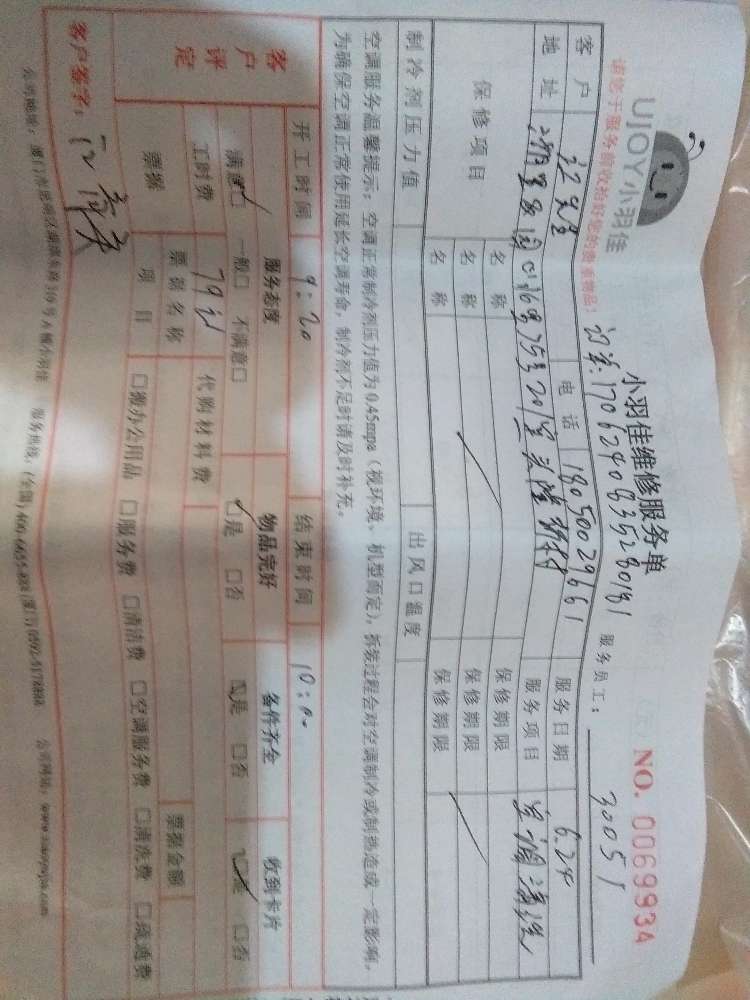 UJOY小羽佳
请您于服务前收拾好您的贵重物品!
小羽佳维修服务单
NO. 0069934
订单:1706240835280181
服务员工: 30051
客户 江先生 电话 18050029661 服务日期 6.24
地址 C1168号75号201室 服务项目 空调清洗
保修项目 名称 保修期限
名称 保修期限
名称 保修期限
制冷剂压力值 出风口温度
空调服务温馨提示:空调正常制冷剂压力值为0.45mpa(视环境、机型而定),拆装过程会对空调制冷或制热造成一定影响,
为确保空调正常使用延长空调寿命,制冷剂不足时请及时补充。
开工时间 9:20 结束时间 10:00
客户评定 服务态度 物品完好 备件齐全 收到卡片
满意□ 一般□ 不满意□ □是 □否 □是 □否 □是 □否
工时费 79元 代购材料费
票据 票据名称 票据金额
项目 □搬办公用品 □服务费 □清洁费 □空调服务费 □清洗费 □疏通费
客户签字:
公司地址:厦门市思明区 310号A幢小羽佳 服务热线:(全国)400-6655-888 (厦门)0592-5178888 公司网址:www.xiaoyujia.com